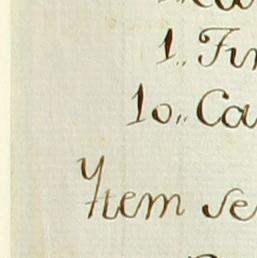 1.. Fu
10.. Ca
Item se